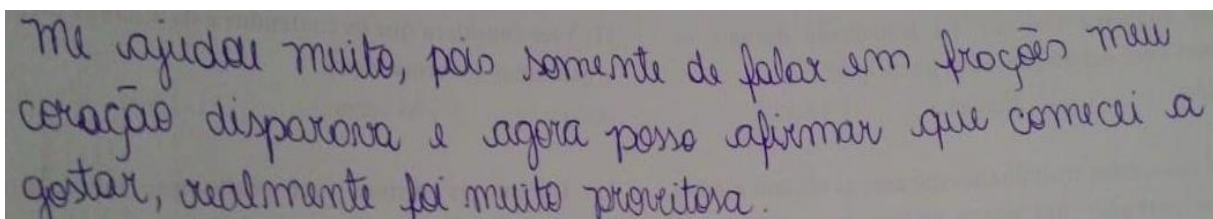 Me ajudou muito, pois somente de falar em frações meu
coração disparava e agora posso afirmar que comecei a
gostar, realmente foi muito proveitosa.